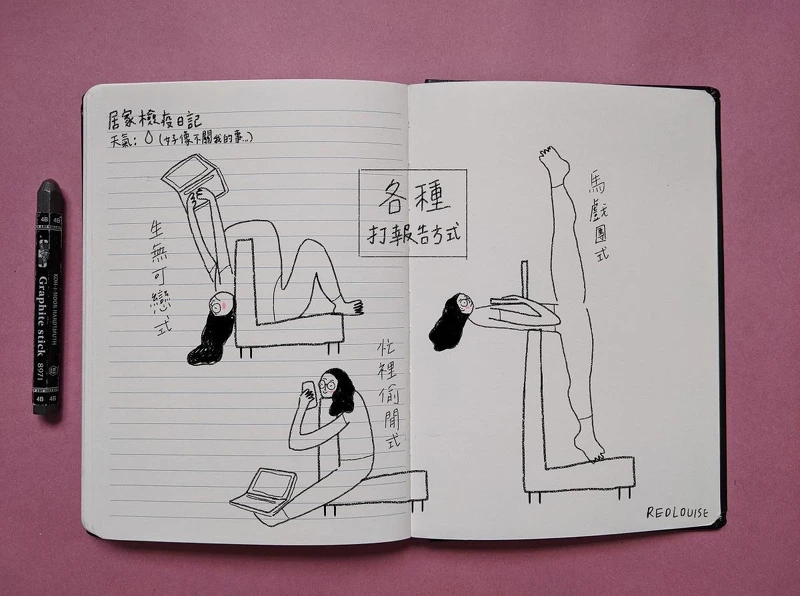 居家檢疫日記
天氣：（好像不關我的事...）
各種
打報告方式
生無可戀式
忙裡偷閒式
馬戲團式
REDLOUISE
4B 4B
KOH-I-NOOR HARDTMUTH
Graphite stick
8971
4B 4B